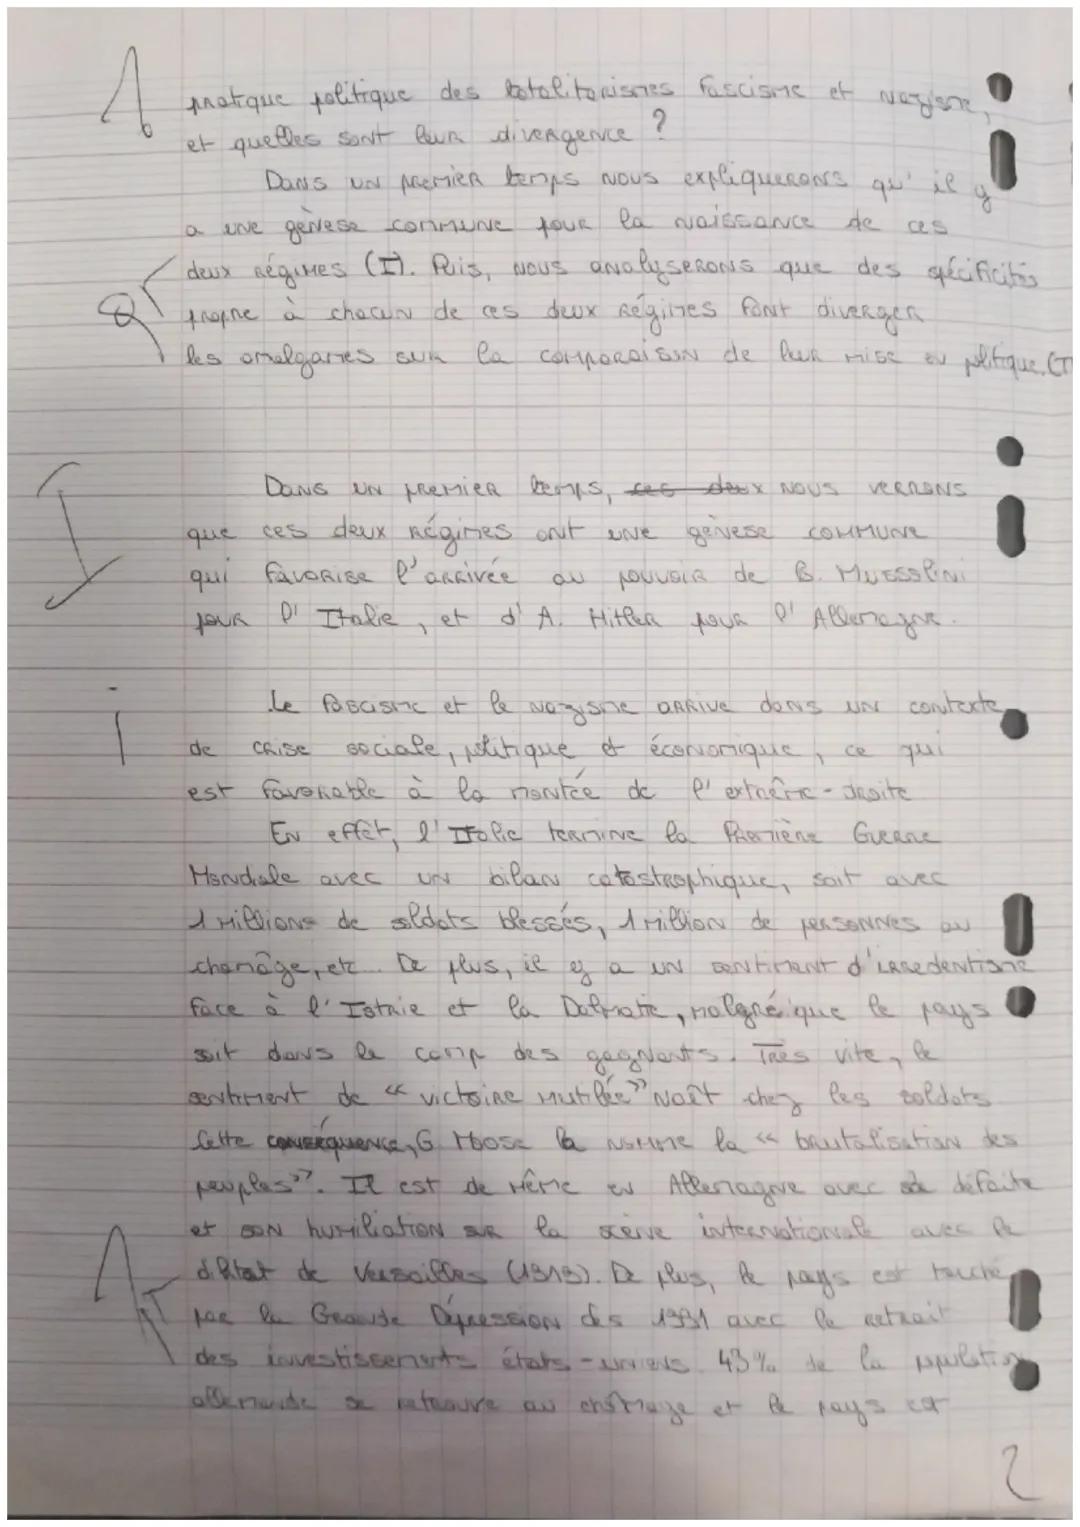 pratique politique des totalitarismes fascisme et nazisme,
et quelles sont leur divergence ?
Dans un premier temps nous expliquerons qu'il y
a une génèse commune pour la naissance de ces
deux régimes (I). Puis, nous analyserons que des spécificités
propre à chacun de ces deux régimes font diverger
les amalgames sur la comparaison de leur mise en politique. (
I
Dans un premier temps, ces deux nous verrons
que ces deux régimes ont une génèse commune
qui favorise l'arrivée au pouvoir de B. Mussolini
pour l'Italie, et d'A. Hitler pour l'Allemagne.
i
Le fascisme et le nazisme arrive dans un contexte
de crise sociale, politique et économique, ce qui
est favorable à la montée de l'extrême-droite
En effet, l'Italie termine la Première Guerre
Mondiale avec un bilan catastrophique, soit avec
1 millions de soldats blessés, 1 million de personnes au
chomâge, etc... De plus, il y a un sentiment d'irredentisme
face à l'Istrie et la Dalmatie, malgré que le pays
soit dans le camp des gagnants. Très vite, le
sentiment de « victoire mutilée » naît chez les soldats
Cette conséquence, G. Mosse la nomme la « brutalisation des
peuples ». Il est de même en Allemagne avec sa défaite
et son humiliation sur la scène internationale avec le
diktat de Versailles (1919). De plus, le pays est touché
par la Grande Dépression dès 1931 avec le retrait
des investissements états-uniens. 43% de la population
allemande se retrouve au chômage et le pays est
2